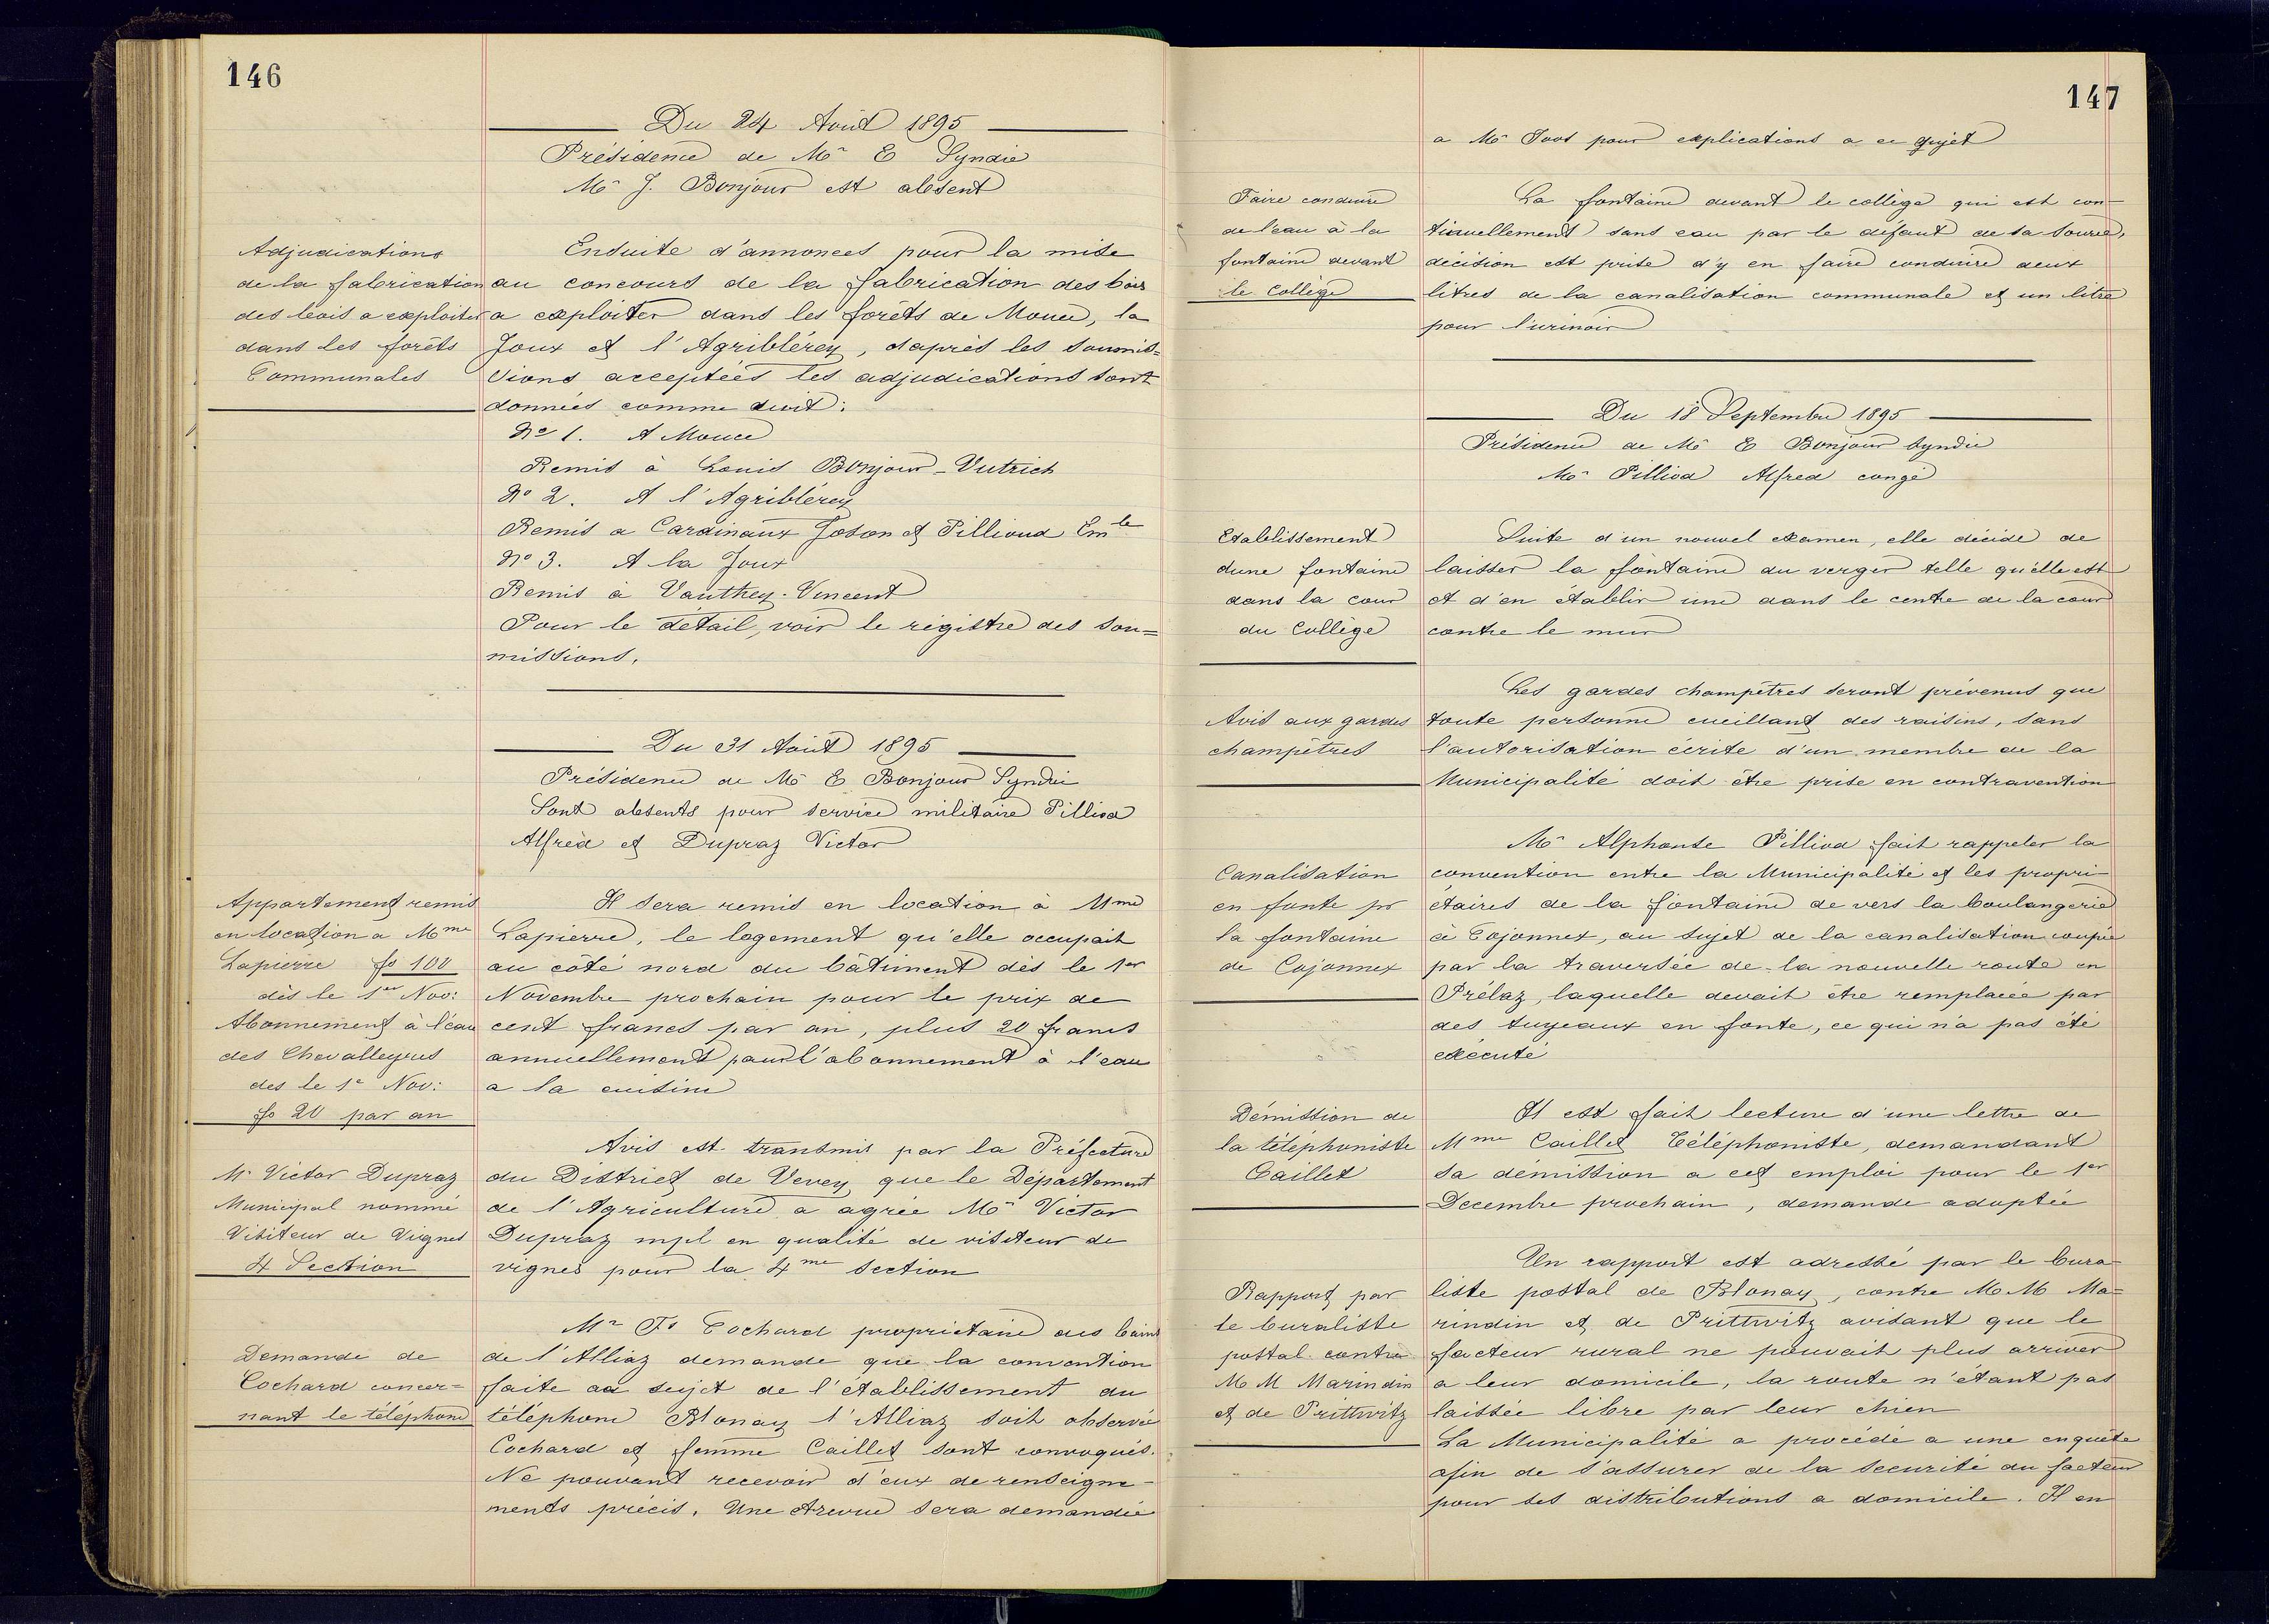 146
Du 24 Août 1895
Présidence de Mr E Syndic
Mr J. Bonjour est absent
Adjudications
de la fabrication
des bois a exploiter
dans les forêts
Communales
Ensuite d'annonces pour la mise
au concours de la fabrication des bois
a exploiter dans les forêts de Mouce, la
Joux et l'Agriblérey, d'après les soumis=
sions acceptées les adjudications sont
données comme suit:
No 1. A Mouce
Remis à Louis Bonjour-Vutrich
No 2. A l'Agriblérey
Remis a Cardinaux Joson et Pillioud Emle
No 3. A la Joux
Remis à Vauthey-Vincent
Pour le détail, voir le régistre des sou=
missions.
Du 31 Août 1895
Présidence de Mr E Bonjour Syndic
Sont absents pour service militaire Pilliod
Alfred et Dupraz Victor
Appartement remis
en location a Mme
Lapierre fs 100
dès le 1er Nov:
Abonnement à l'eau
des Chevalleyres
des le 1e Nov:
fs 20 par an
Il sera remis en location à Mme
Lapierre, le logement qu'elle occupait
au côté nord du bâtiment dès le 1er
Novembre prochain pour le prix de
cent francs par an, plus 20 francs
annuellement pour l'abonnement à l'eau
a la cuisine
Mr Victor Dupraz
Municipal nommé
Visiteur de Vignes
4 Section
Avis est transmis par la Préfecture
du District de Vevey que le Département
de l'Agriculture a agrée Mr Victor
Dupraz mpl en qualité de visiteur de
vignes pour la 4me section
Demande de
Cochard concer=
nant le téléphone
Mr Fs Cochard proprietaire des bains
de l'Alliaz demande que la convention
faite au sujet de l'établissement du
téléphone Blonay l'Alliaz soit observée
Cochard et femme Caillet sont convoqués.
Ne pouvant recevoir d'eux de renseigne-
ments précis. Une sera demandée
147
a Mr Joos pour explications a ce sujet
Faire conduire
de l'eau à la
fontaine devant
le Collège
La fontaine devant le collège qui est con-
tinuellement sans eau par le défaut de sa source,
décision est prise d'y en faire conduire deux
litres de la canalisation communale et un litre
pour l'urinoir
Du 18 Septembre 1895
Présidence de Mr E Bonjour Syndic
Mr Pilliod Alfred congé
Etablissement
dune fontaine
dans la cour
du Collège
Suite d'un nouvel examen, elle décide de
laisser la fontaine du verger telle qu'elle est
et d'en établir une dans le centre de la cour
contre le mur
Avis aux gardes
champêtres
Les gardes champêtres seront prévenus que
toute personne cueillant des raisins, sans
l'autorisation écrite d'un membre de la
Municipalité doit être prise en contravention
Canalisation
en fonte pr
la fontaine
de Cojonnex
Mr Alphonse Pilliod fait rappeler la
convention entre la Municipalité et les propri-
étaires de la fontaine de vers la boulangerie
à Cojonnex, au sujet de la canalisation coupée
par la traversée de la nouvelle route en
Prélaz, laquelle devait être remplacée par
des tuyeaux en fonte, ce qui n'a pas été
exécuté
Démission de
la téléphoniste
Caillet
Il est fait lecture d'une lettre de
Mme Caillet Téléphoniste, demandant
sa démission a cet emploi pour le 1er
Decembre prochain, demande adoptée
Rapport par
le buraliste
postal contre
M M Marindin
et de Prittwitz
Un rapport est adressé par le bura-
liste postal de Blonay, contre M M Ma=
rindin et de Prittwitz avisant que le
facteur rural ne pouvait plus arriver
a leur domicile, la route n'étant pas
laissée libre par leur chien
La Municipalité a procédé a une enquête
afin de s'assurer de la securité du facteur
pour ses distributions a domicile. Il en